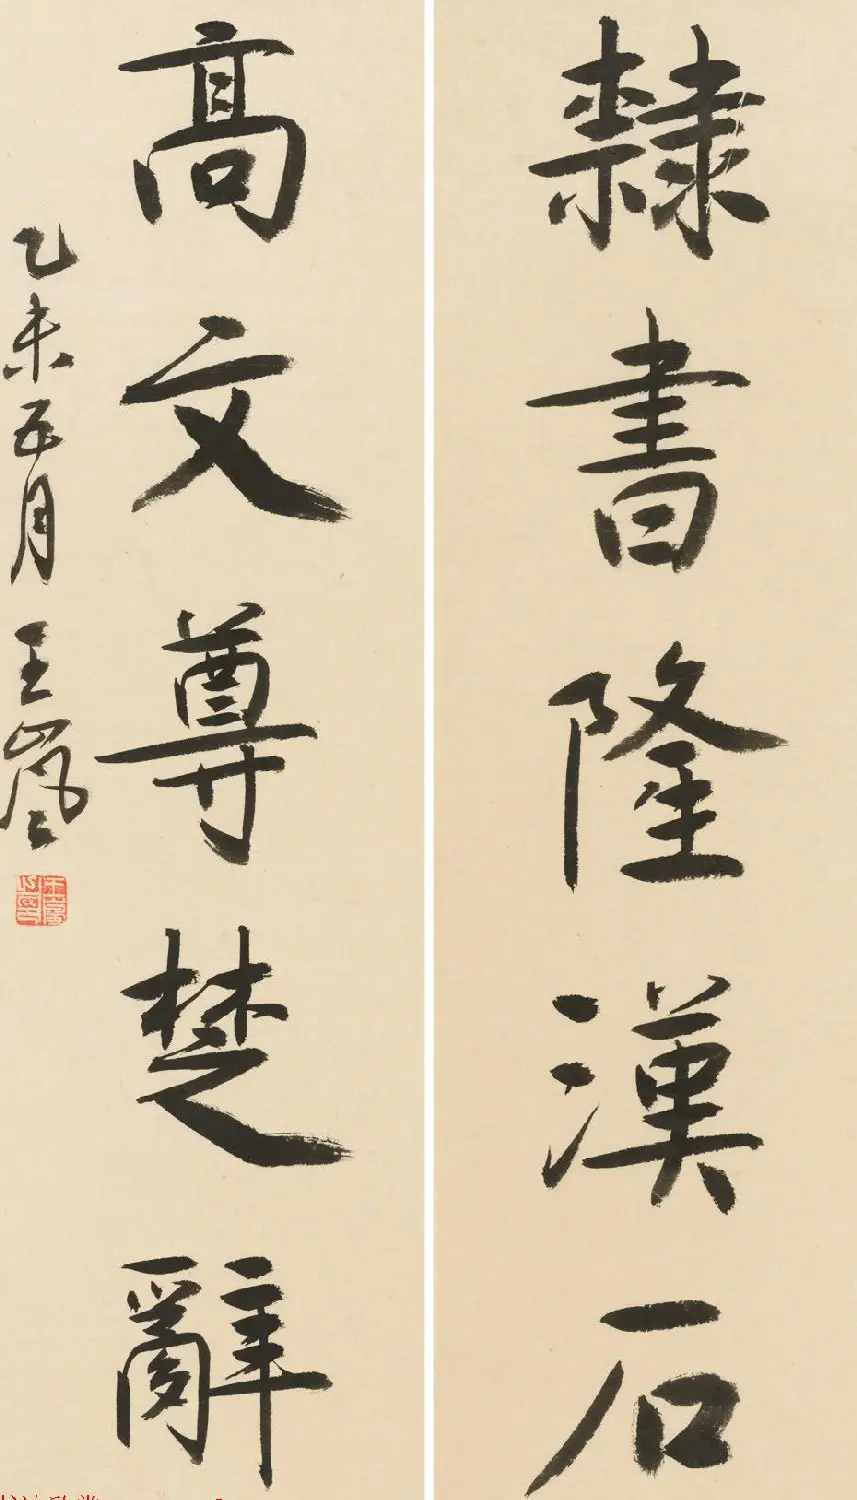 隸書隆漢石
高文尊楚辭
乙未五月王嵐